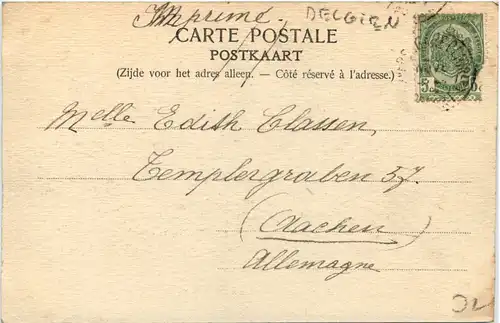 Imprimé. BELGIEN
CARTE POSTALE
POSTKAART
(Zijde voor het adres alleen. — Côté réservé à l'adresse.)
Melle Edith Classen,
Templergraben 57.
(Aachen)
Allemagne